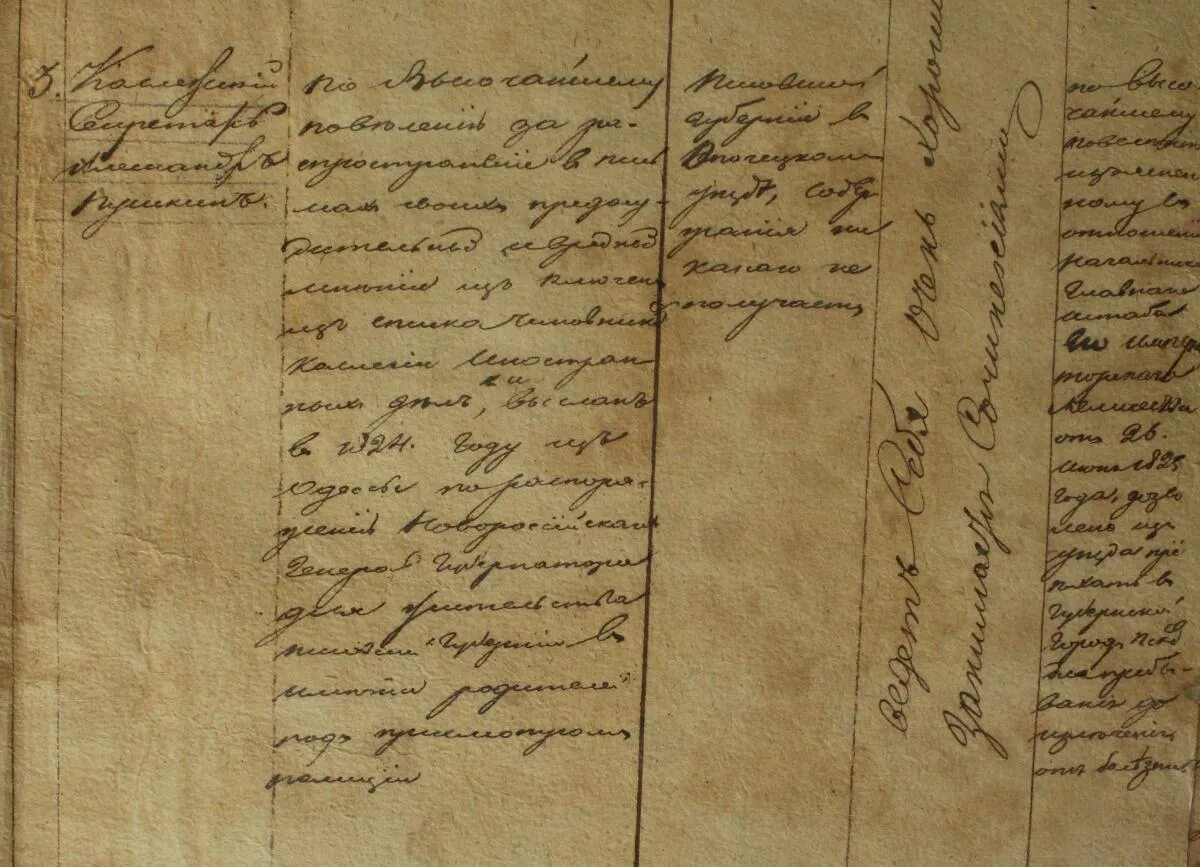 3. Коллежский
Секретарь
Александръ
Пушкинъ.
по Высочайшему
повелению за ра-
спространение в пись
мах своих предосу-
дительных и вредных
мнений изъ ключен
изъ списка чиновников
Коллегии Иностран
ных делъ, и выслан
в 1824. Году изъ
Одессы по распоря-
жению Новороссийскаго
Генерал Губернатора
для жительства
псковской Губернии в
имении родителей
под присмотром
полиции
Псковской
губернии в
Опочецком
уезде, содер
жания ни
какаго не
получает
ведетъ Себя очень хорошо
Занимается Сочинениями
по высо
чайшему
повелению
изъяснен
ному въ
отношении
начальника
Главнаго
штаба
Его Импера
торскаго
Величества
отъ 26.
июня 1825
года, дозво
лено изъ
уезда при
ехать в
Губернской
городъ Псков
для пребы-
вания до
излечения
отъ болезни